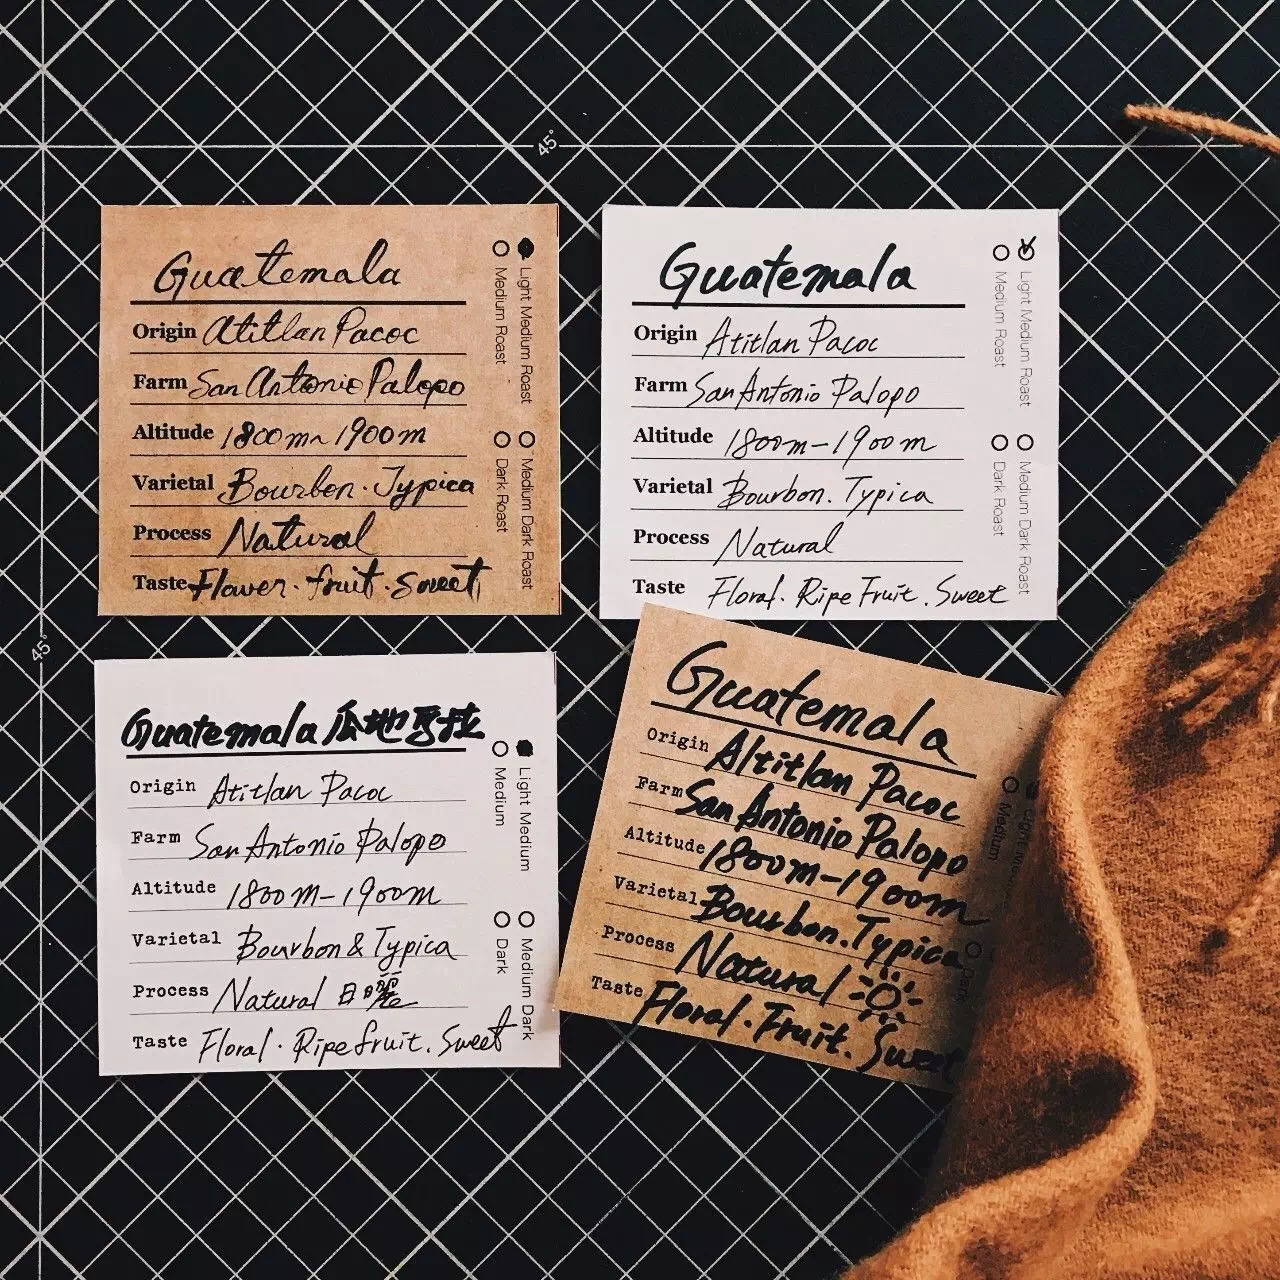 45°
Guatemala
Origin Atitlan Pacoc
Farm San Antonio Palopo
Altitude 1800m~1900m
Varietal Bourbon. Typica
Process Natural
Taste Flower. fruit. sweet
Light Medium Roast
Medium Roast
Medium Dark Roast
Dark Roast
Guatemala
Origin Atitlan Pacoc
Farm San Antonio Palopo
Altitude 1800m-1900m
Varietal Bourbon. Typica
Process Natural
Taste Floral. Ripe Fruit. Sweet
Light Medium Roast
Medium Roast
Medium Dark Roast
Dark Roast
45°
Guatemala 瓜地馬拉
Origin Atitlan Pacoc
Farm San Antonio Palopo
Altitude 1800m-1900m
Varietal Bourbon & Typica
Process Natural 日曬
Taste Floral. Ripe fruit. Sweet
Light Medium
Medium
Medium Dark
Dark
Guatemala
Origin Altitlan Pacoc
Farm San Antonio Palopo
Altitude 1800m-1900m
Varietal Bourbon. Typica
Process Natural
Taste Floral. Fruit. Sweet
Light
Medium
Dark